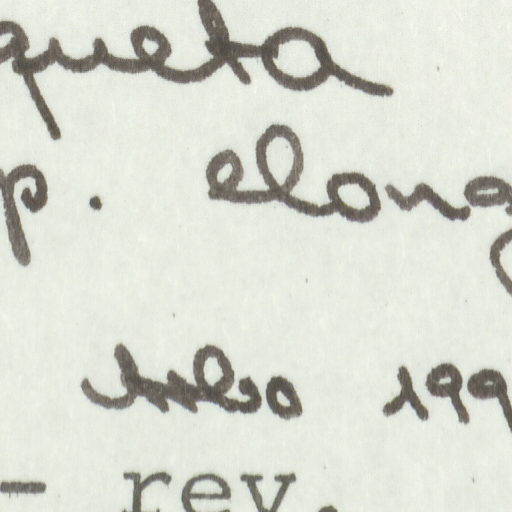 queta
p. elong
199
- rev.